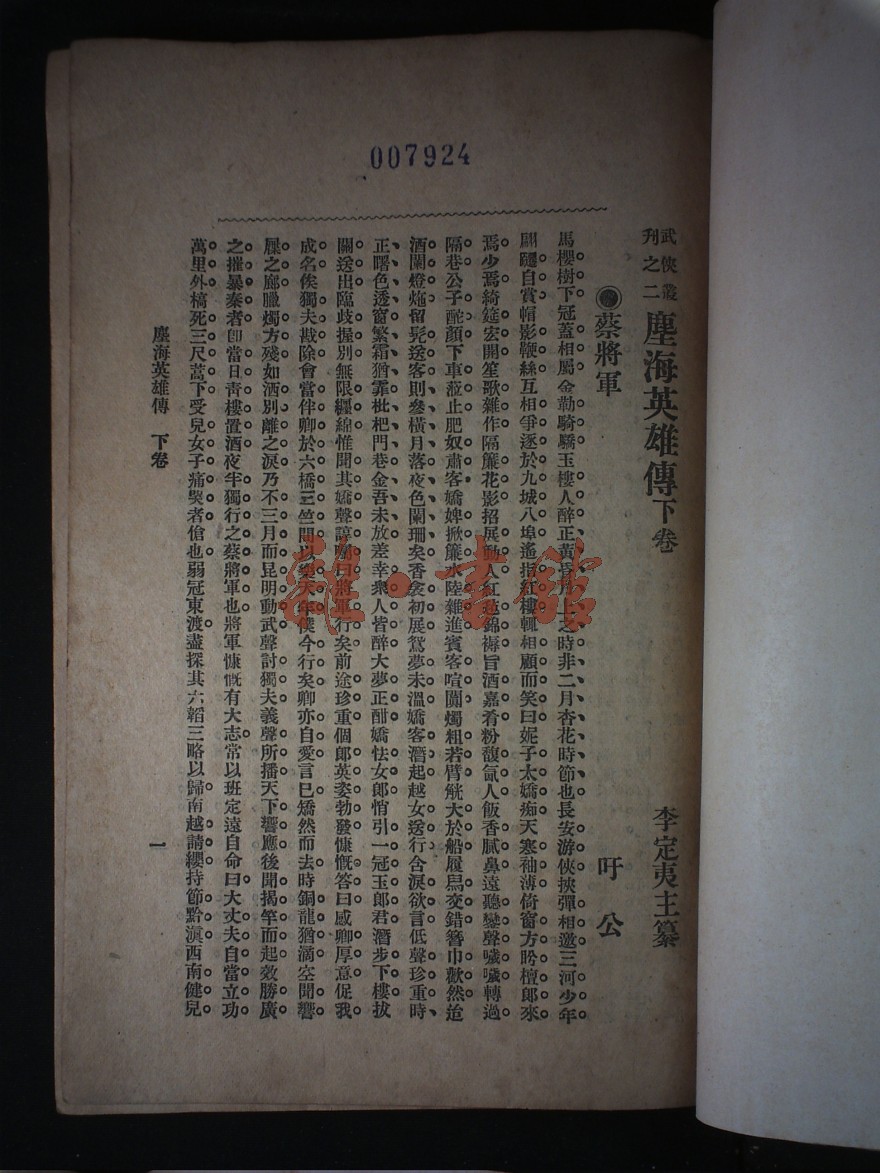 007924
武俠叢刊之二 塵海英雄傳下卷 李定夷主纂
蔡將軍 吁公
馬櫻樹下冠蓋相屬金勒騎驕玉樓人醉正黃昏月上之時非二月杏花時節也長安游俠挾彈相邀三河少年
翩躚自賞帽影鞭絲互相爭逐於九城八埠遙指紅樓輒相顧而笑曰妮子太嬌痴天寒袖薄倚窗方盻檀郎來
焉少焉綺筵宏開笙歌雜作隔簾花影招展動人紅氍錦褥旨酒嘉肴粉馥氤人飯香膩鼻遠聽鑾聲噦噦轉過
隔巷公子酡顏下車蒞止肥奴肅客嬌婢掀簾水陸雜進賓客喧闐燭粗若臂觥大於船履舃交錯簪巾歡然迨
酒闌燈炧留髡送客則參橫月落夜色闌珊矣香衾初展鴛夢未溫嬌客潛起越女送行含淚欲言低聲珍重時
正曙色透窗繁霜猶霏枇杷門巷金吾未放差幸衆人皆醉大夢正酣嬌怯女郎悄引一冠玉郎君潛步下樓拔
關送出臨歧握別無限纏綿惟聞其嬌聲諄囑曰將軍行矣前途珍重個郎英姿勃發慷慨答曰感卿厚意促我
成名俟獨夫戡除會當伴卿於六橋三竺間以樂天年僕今行矣卿亦自愛言已矯然而去時銅龍猶滴空聞響
屧之廊臘燭方殘如洒別離之淚乃不三月而昆明動武聲討獨夫義聲所播天下響應後聞揭竿而起效勝廣
之摧暴秦者卽當日靑樓置酒夜半獨行之蔡將軍也將軍慷慨有大志常以班定遠自命曰大丈夫自當立功
萬里外槁死三尺蒿下受兒女子痛哭者傖也弱冠東渡盡探其六韜三略以歸南越請纓持節黔滇西南健兒
塵海英雄傳 下卷 一
雒·書館